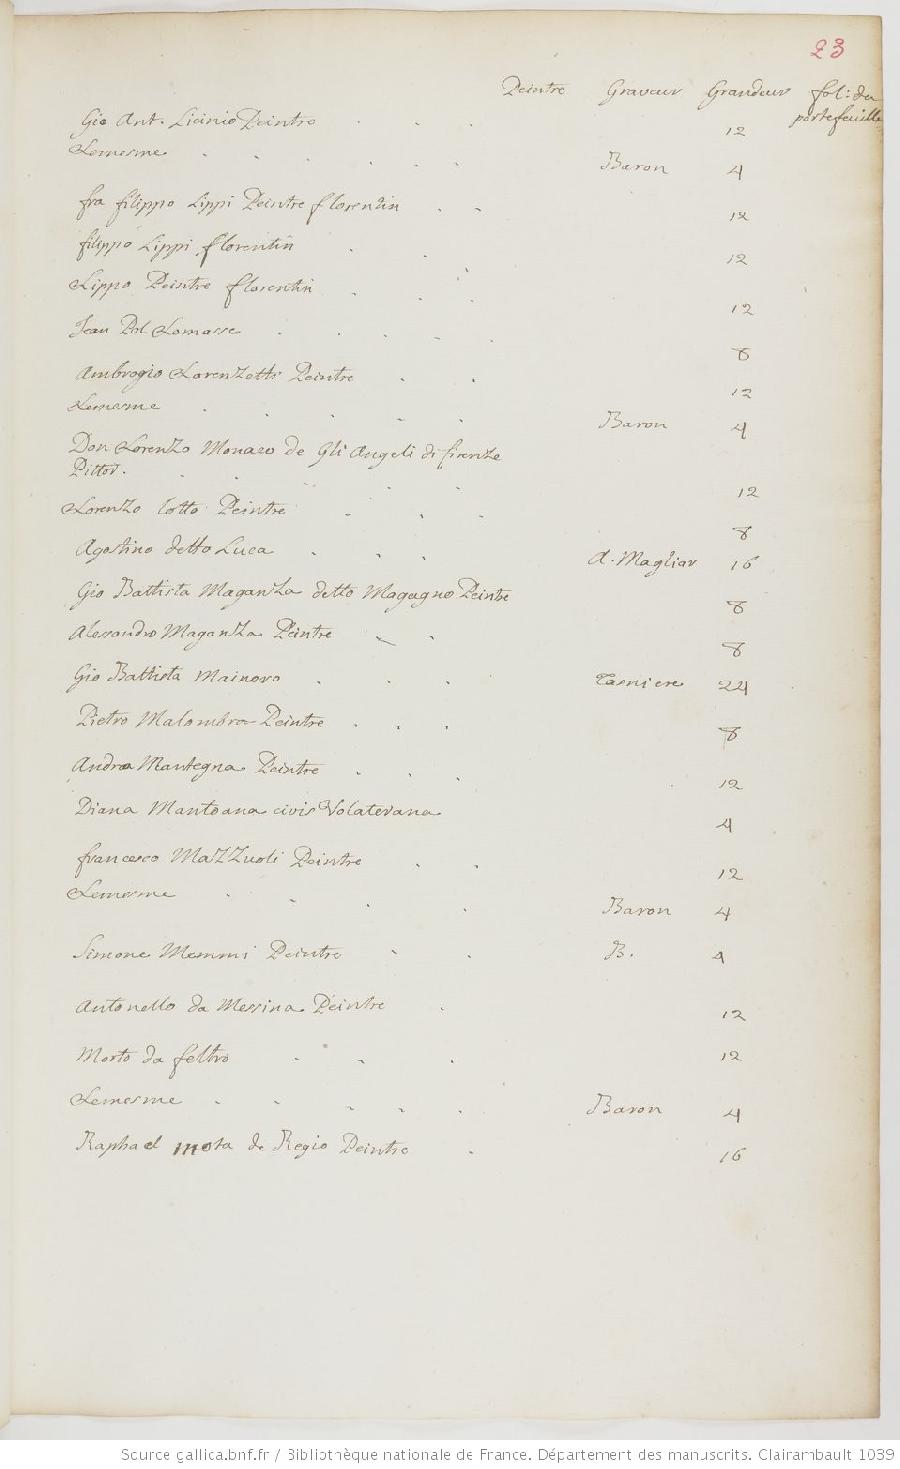 23
Peintre Graveur Grandeur fol: du portefeuille
Gio Ant. Licinio Peintre . . . 12
Lemesme . . . . . . Baron 4
fra filippo Lippi Peintre florentin . . 12
filippo Lippi florentin . . . 12
Lippo Peintre florentin . . . 12
Jean Pol Lomasse . . . . . 8
Ambrogio Lorenzetti Peintre . . 12
Lemesme . . . . . Baron 4
Don Lorenzo Monaco de Gli Angeli di firenze
Pittor. . . . . . 12
Lorenzo lotto Peintre . . . 8
Agostino detto Luca . . . A. Magliar 16
Gio Battista Maganza detto Magagno Peintre 8
Alessandro Maganza Peintre . . 8
Gio Battista Mainoro . . . Tasniere 24
Pietro Malombra Peintre . . . 8
Andrea Mantegna Peintre . . . 12
Diana Mantoana civis Volaterana 4
francesco Mazzuoli Peintre . . 12
Lemesme . . . . Baron 4
Simone Memmi Peintre . . B. 4
Antonello da Messina Peintre . 12
Morto da feltro . . . 12
Lemesme . . . . . Baron 4
Raphael mota de Regio Peintre . 16
Source gallica.bnf.fr / Bibliothèque nationale de France. Département des manuscrits. Clairambault 1039